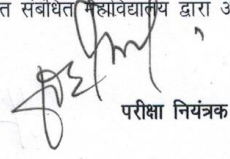 त संबंधित महाविद्यालय द्वारा उ
परीक्षा नियंत्रक